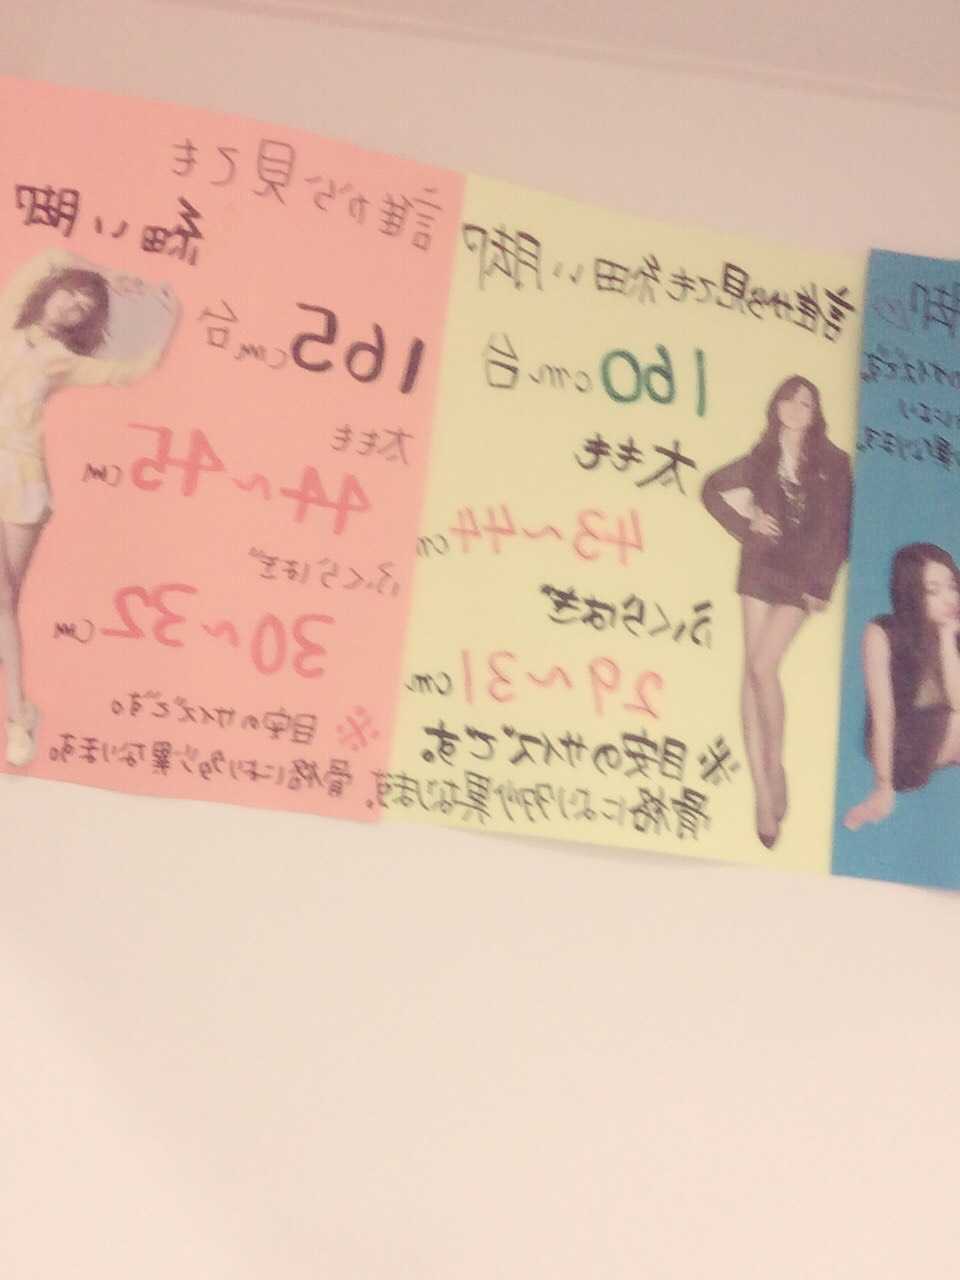 誰から見ても
細い脚
165cm台
太もも
44～45cm
ふくらはぎ
30～32cm
※目安のサイズです。
骨格により多少異なります。
誰から見ても細い脚
160cm台
太もも
43～44cm
ふくらはぎ
29～31cm
※目安のサイズです。
骨格により多少異なります。
脚
サイズです。
により
異なります。